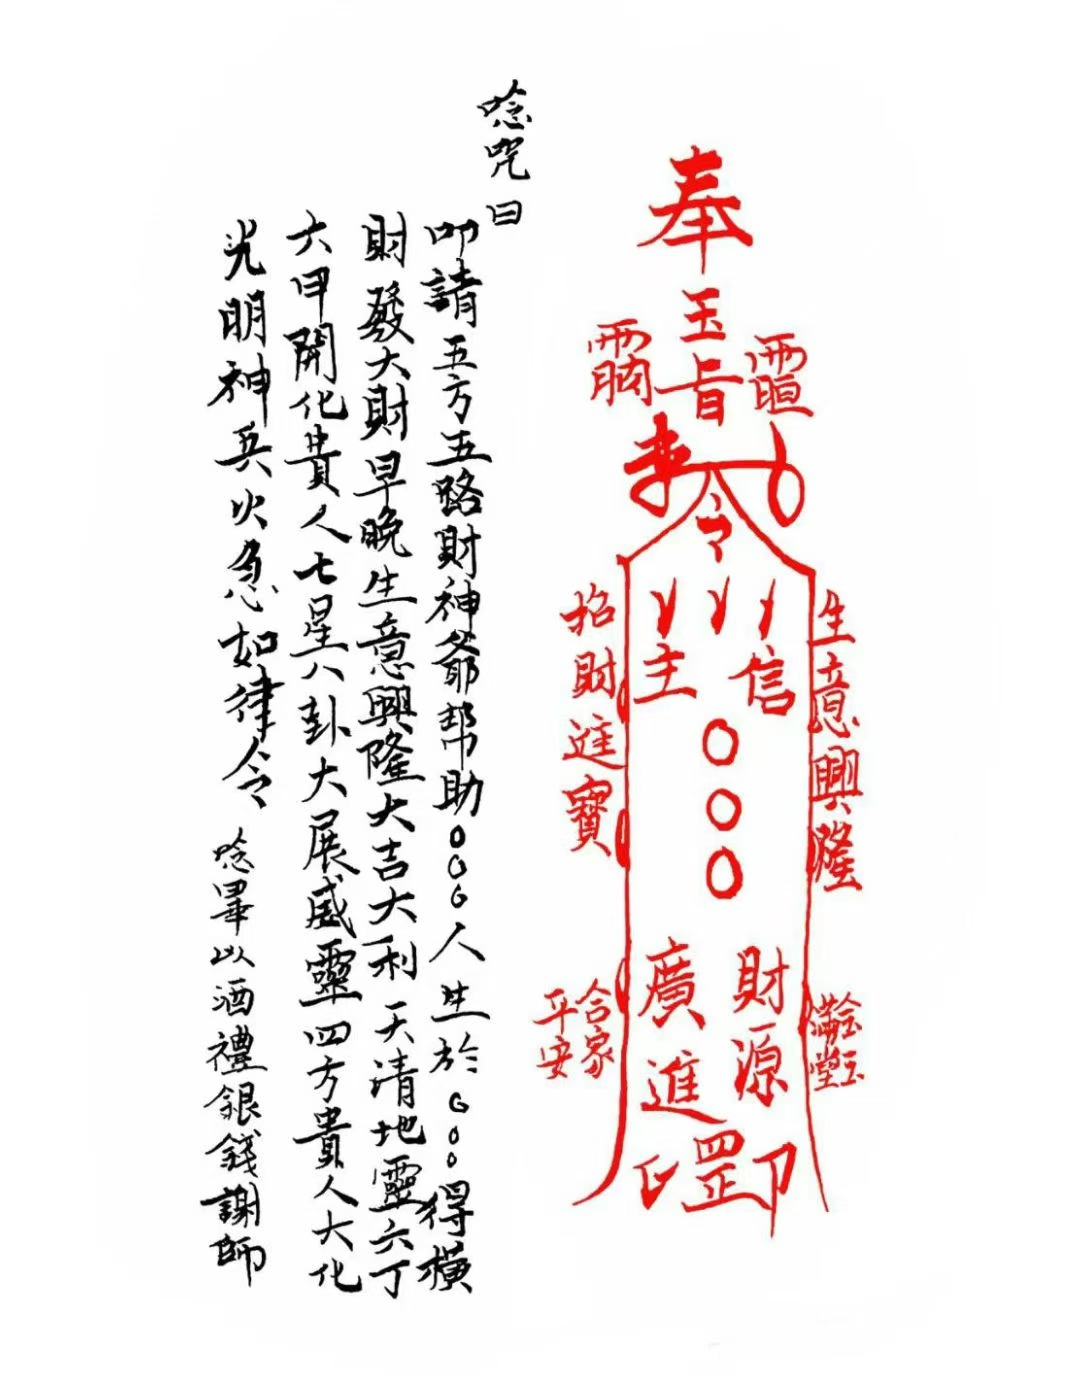 奉
玉旨
令
信主
○○○
財源廣進
罡印
生意興隆
招財進寶
合家平安
唸咒曰
叩請五方五路財神爺幫助○○○人生於○○○得橫
財發大財早晚生意興隆大吉大利天清地靈六丁
六甲開化貴人七星八卦大展威靈四方貴人大化
光明神兵火急如律令
唸畢以酒禮銀錢謝師